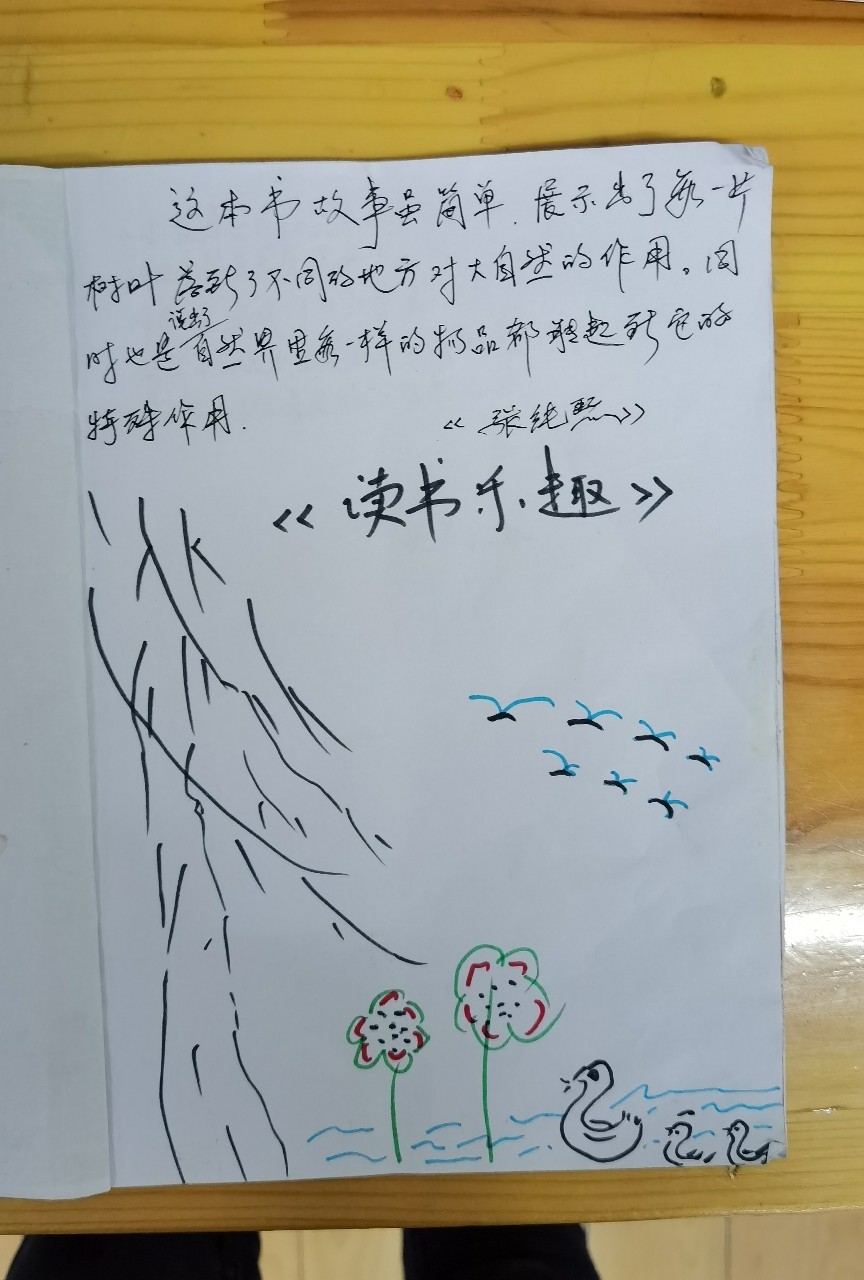 这本书故事虽简单.展示出了每一片
树叶落到了不同的地方对大自然的作用。同
说出了
时也是自然界里每一样的物品都能起到它的
特殊作用.
《张纯》
《读书乐趣》